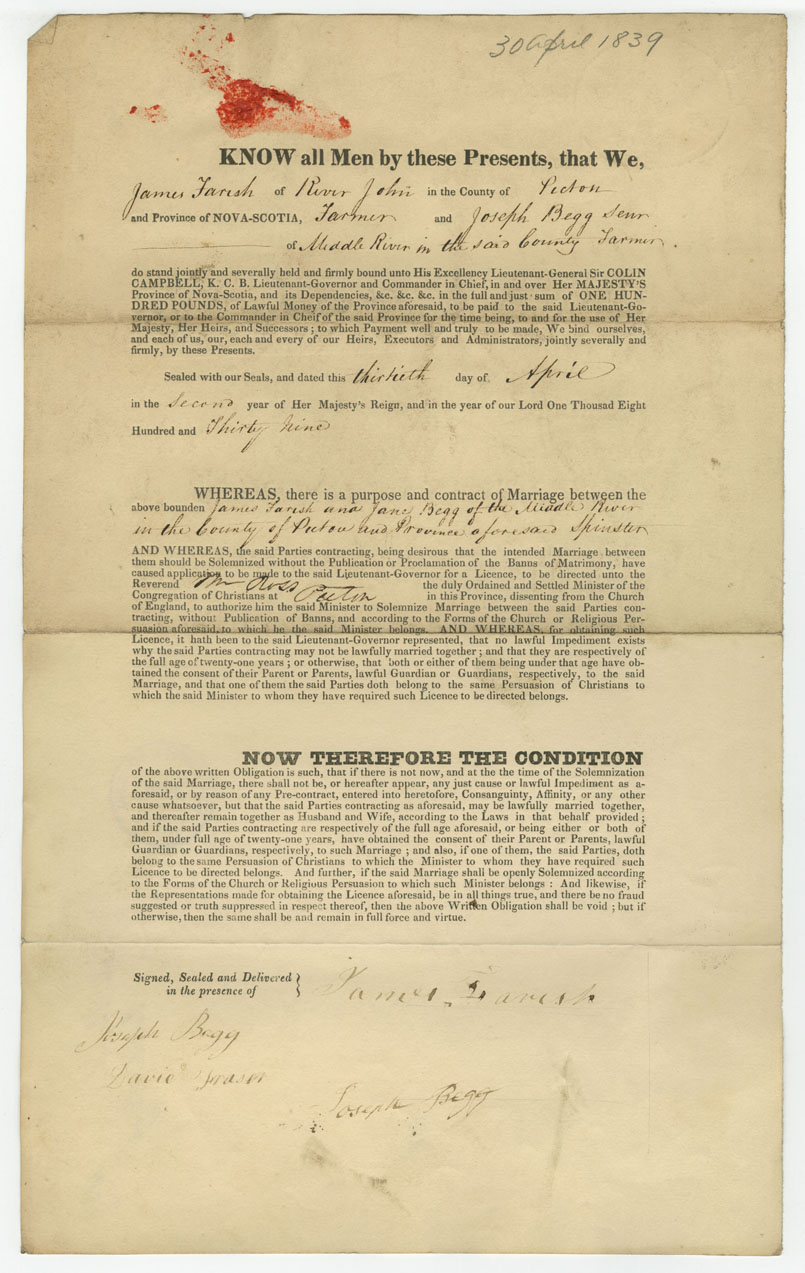 30 April 1839
KNOW all Men by these Presents, that We,
James Farish of River John in the County of Picton
and Province of NOVA-SCOTIA, Farmer and Joseph Begg Senr
of Middle River in the said County Farmer.
do stand jointly and severally held and firmly bound unto His Excellency Lieutenant-General Sir COLIN
CAMPBELL, K. C. B. Lieutenant-Governor and Commander in Chief, in and over Her MAJESTY'S
Province of Nova-Scotia, and its Dependencies, &c. &c. &c. in the full and just sum of ONE HUN-
DRED POUNDS, of Lawful Money of the Province aforesaid, to be paid to the said Lieutenant-Go-
vernor, or to the Commander in Cheif of the said Province for the time being, to and for the use of Her
Majesty, Her Heirs, and Successors ; to which Payment well and truly to be made, We bind ourselves,
and each of us, our, each and every of our Heirs, Executors and Administrators, jointly severally and
firmly, by these Presents.
Sealed with our Seals, and dated this thirtieth day of April
in the Second year of Her Majesty's Reign, and in the year of our Lord One Thousad Eight
Hundred and Thirty Nine
WHEREAS, there is a purpose and contract of Marriage between the
above bounden James Farish and Jane Begg of the Middle River
in the County of Picton and Province aforesaid Spinster
AND WHEREAS, the said Parties contracting, being desirous that the intended Marriage between
them should be Solemnized without the Publication or Proclamation of the Banns of Matrimony, have
caused application to be made to the said Lieutenant-Governor for a Licence, to be directed unto the
Reverend Wm Ross the duly Ordained and Settled Minister of the
Congregation of Christians at Picton in this Province, dissenting from the Church
of England, to authorize him the said Minister to Solemnize Marriage between the said Parties con-
tracting, without Publication of Banns, and according to the Forms of the Church or Religious Per-
suasion aforesaid, to which he the said Minister belongs. AND WHEREAS, for obtaining such
Licence, it hath been to the said Lieutenant-Governor represented, that no lawful Impediment exists
why the said Parties contracting may not be lawfully married together ; and that they are respectively of
the full age of twenty-one years ; or otherwise, that both or either of them being under that age have ob-
tained the consent of their Parent or Parents, lawful Guardian or Guardians, respectively, to the said
Marriage, and that one of them the said Parties doth belong to the same Persuasion of Christians to
which the said Minister to whom they have required such Licence to be directed belongs.
NOW THEREFORE THE CONDITION
of the above written Obligation is such, that if there is not now, and at the the time of the Solemnization
of the said Marriage, there shall not be, or hereafter appear, any just cause or lawful Impediment as a-
foresaid, or by reason of any Pre-contract, entered into heretofore, Consanguinty, Affinity, or any other
cause whatsoever, but that the said Parties contracting as aforesaid, may be lawfully married together,
and thereafter remain together as Husband and Wife, according to the Laws in that behalf provided ;
and if the said Parties contracting are respectively of the full age aforesaid, or being either or both of
them, under full age of twenty-one years, have obtained the consent of their Parent or Parents, lawful
Guardian or Guardians, respectively, to such Marriage ; and also, if one of them, the said Parties, doth
belong to the same Persuasion of Christians to which the Minister to whom they have required such
Licence to be directed belongs. And further, if the said Marriage shall be openly Solemnized according
to the Forms of the Church or Religious Persuasion to which such Minister belongs : And likewise, if
the Representations made for obtaining the Licence aforesaid, be in all things true, and there be no fraud
suggested or truth suppressed in respect thereof, then the above Written Obligation shall be void ; but if
otherwise, then the same shall be and remain in full force and virtue.
Signed, Sealed and Delivered
in the presence of
James Farish
Joseph Begg
David Fraser
Joseph Begg